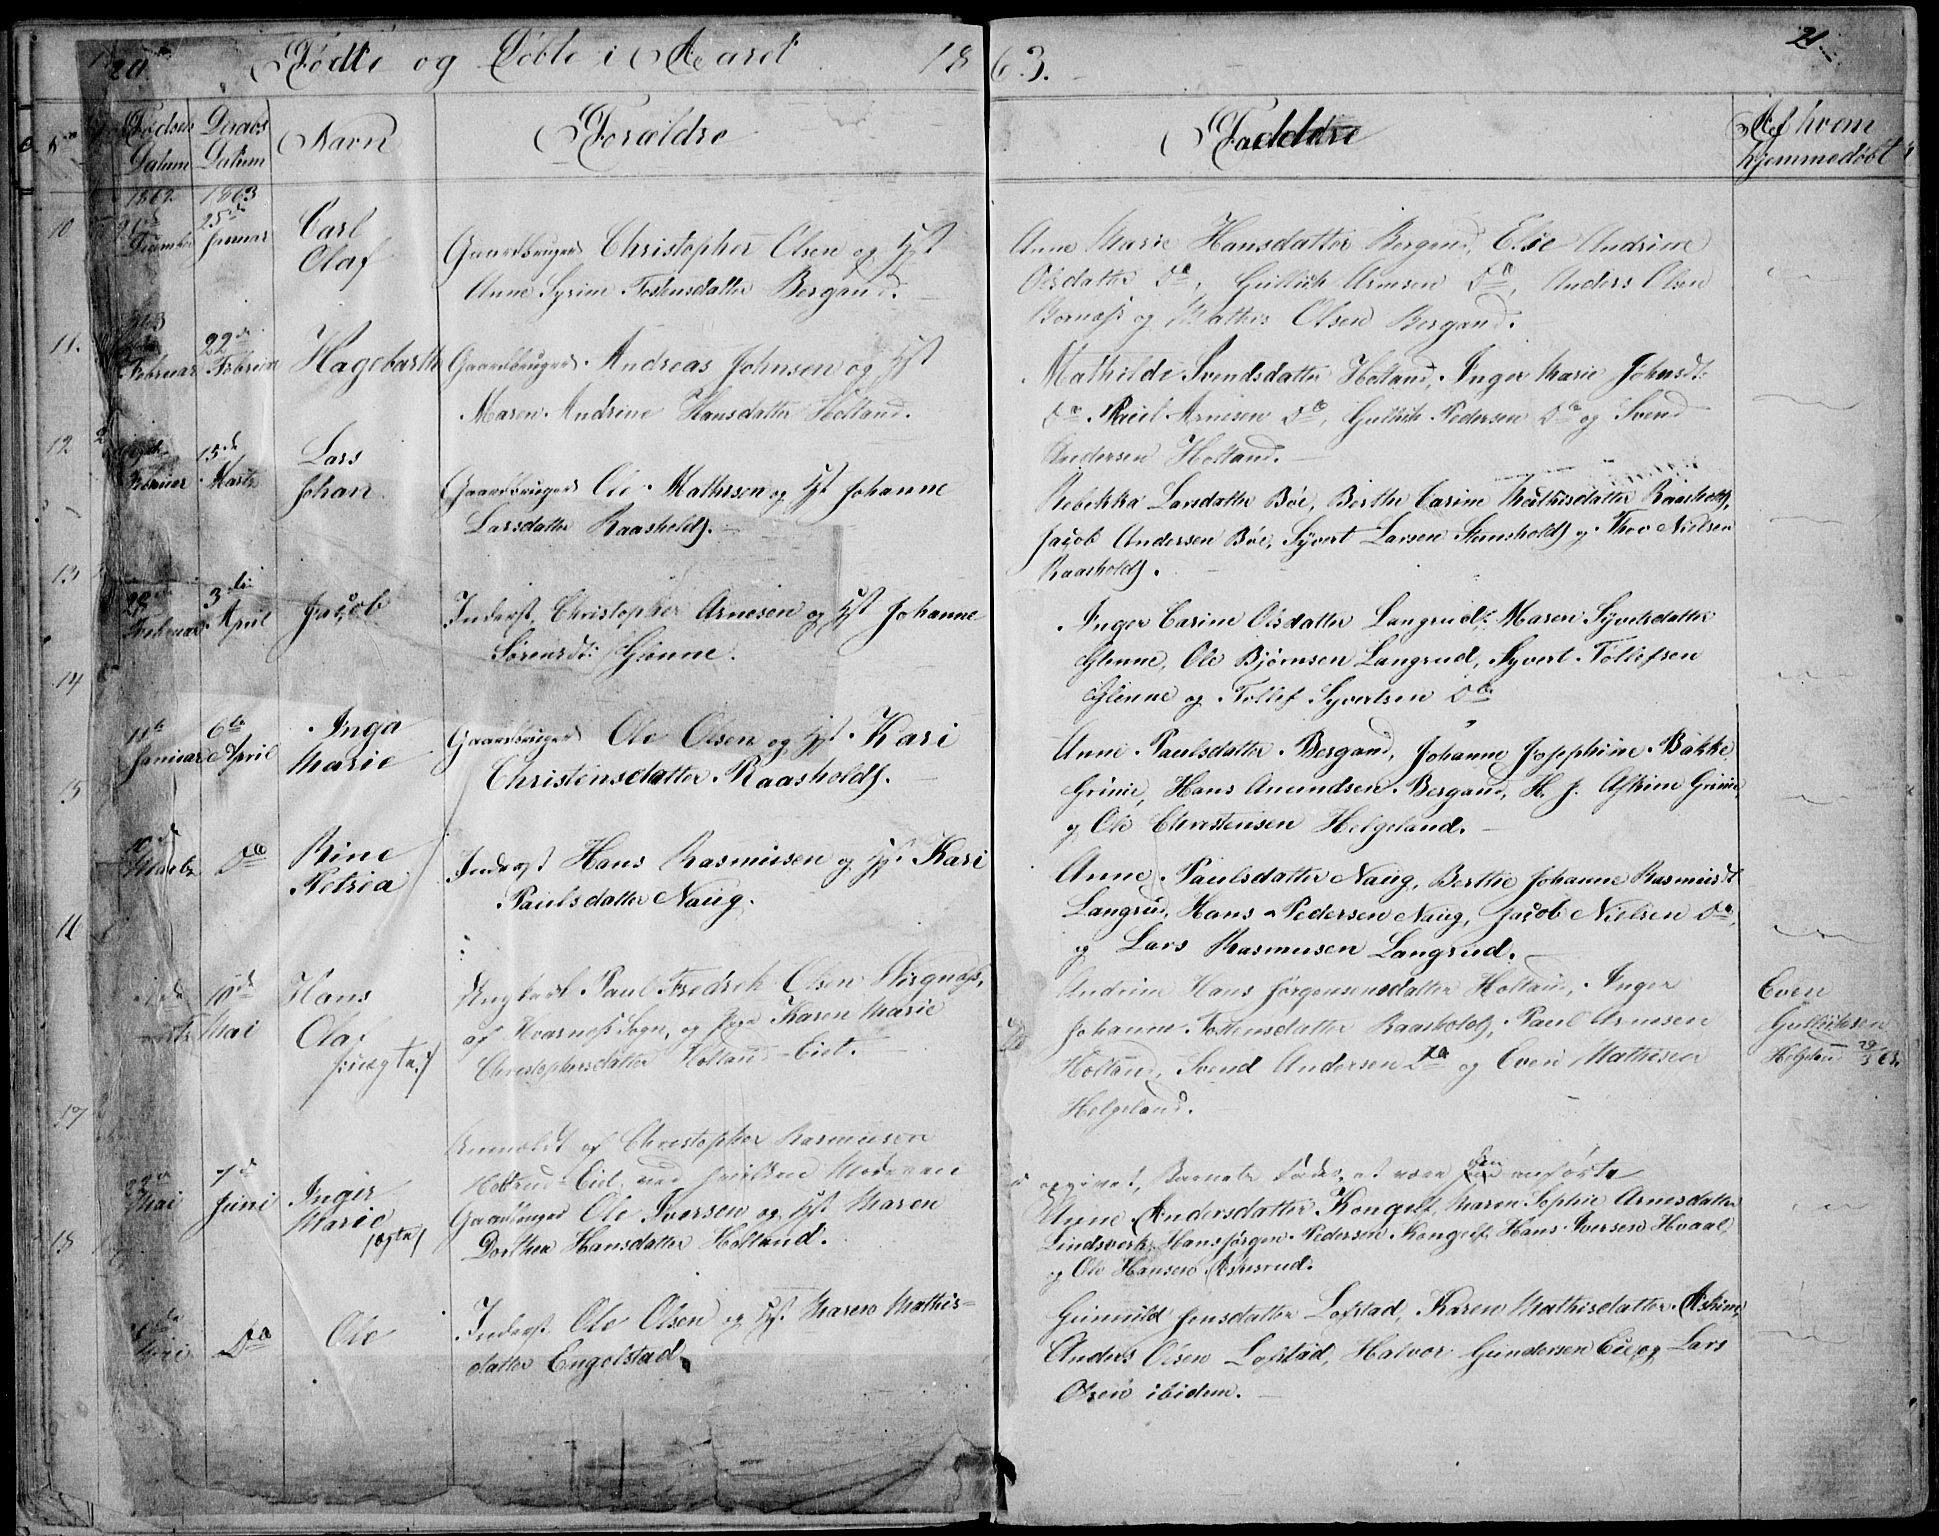 20 Fødte og Døbte i Aaret 1863. 21
No Fødsels Datum Daabs Datum Navn Forældre Faddere Af hvem hjemmedøbt
1862. 1863
10 December 25de Januar Carl Olaf
Gaardbruger Christopher Olsen og Hst
Anne Syrine Tostensdatter Bergand.
Anne Marie Hansdatter Bergand, Elie Andrine
Olsdatter Do, Gullich Arnesen Do, Anders Olsen
Bornaß og Mathis Olsen Bergand.
1863
11. Februar 22de Februar Hagebarth
Gaardbruger Andreas Johnsen og Hst
Maren Andrine Hansdatter Holtand.
Mathilde Svendsdatter Holtand, Inger Marie Johnsdt.
Do Paul Arnesen Do, Gullich Pedersen Do og Svend
Andersen Holtand.
12 Februar 15de Marts Lars Johan
Gaardbruger Ole Mathisen og Hst Johanne
Larsdatter Raasholdt.
Rebekka Larsdatter Böe, Berthe Carine Mathisdatter Raasholdt,
Jacob Andersen Böe, Syvert Larsen Stensholdt og Thov Nielsen
Raasholdt.
13 28de Februar 3die April Jacob
Inderst Christopher Arnesen og Hst Johanne
Sörensdt: Glenne.
Inger Carine Olsdatter Langrud, Maren Syvertsdatter
Glenne, Ole Bjørnsen Langrud, Syvert Tollefsen
Glenne og Tollef Syvertsen Do
14 11te Januar 6te April Inga Marie
Gaardbruger Ole Olsen og Hst Kari
Christensdatter Raasholdt.
Anne Paulsdatter Bergand, Johanne Josephine Bakke
Grinie, Hans Amundsen Bergand, H. J. Askim Grinie,
og Ole Christensen Helgeland.
15 10de Marts Do Rine Petrea
Inderst Hans Rasmusen og Hst Kari
Paulsdatter Naug.
Anne Paulsdatter Naug, Berthe Johanne Rasmusdt
Langrud, Hans Pedersen Naug, Jacob Nielsen Do,
og Lars Rasmusen Langrud.
16 10de Mai Hans Olaf (uægte)
Ungkarl Paul Fredrik Olsen
af Hvarneß Sogn, og Pige Karen Marie
Christophersdatter Holtand-Eiet.
Andrine Hans Jørgensensdatter Holtand, Inger
Johanne Tostensdatter Raasholdt, Paul Arnesen
Holtand, Svend Andersen Do og Even Mathisen
Helgeland.
Even
Gullichsen
Helgeland 29/3 63.
Anmeldt af Christopher Rasmusen
Holtand-Eiet, ved hvilken Moderen
opgivet, Barnets Fader, at være den anførte
17 Mai 7de Juni Inger Marie (ægte)
Gaardbruger Ole Iversen og Hst Maren
Dorthea Hansdatter Holtand.
Anne Andersdatter Kongelf, Maren Sophie Arnesdatter
Lindsverk, Hans Jørgen Pedersen Kongelf, Hans Iversen Hvaal,
og Ole Hansen Asnerud.
18 Mai Do Ole
Inderst Ole Olsen og Hst Maren Mathis-
datter Engelstad.
Gunnild Jensdatter Lofstad, Karen Mathisdatter Askim,
Anders Olsen Lofstad, Halvor Gundersen Eie og Lars
Olsen ibidem.